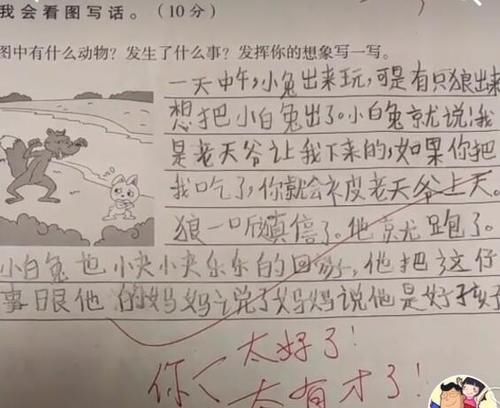 我会看图写话。（10分）
图中有什么动物？发生了什么事？发挥你的想象写一写。
一天中午，小兔出来玩，可是有只狼出来
想把小白兔出了。小白兔京尤说：我
是老天爷让我下来的，如果你把
我吃了，你就会被老天爷上天。
狼一听真信了。他京尤跑了。
小白兔也小夹小夹乐乐的回家，他把这仔
事日跟他的妈妈说了妈妈说他是好孩子
你太好了！
太有才了！